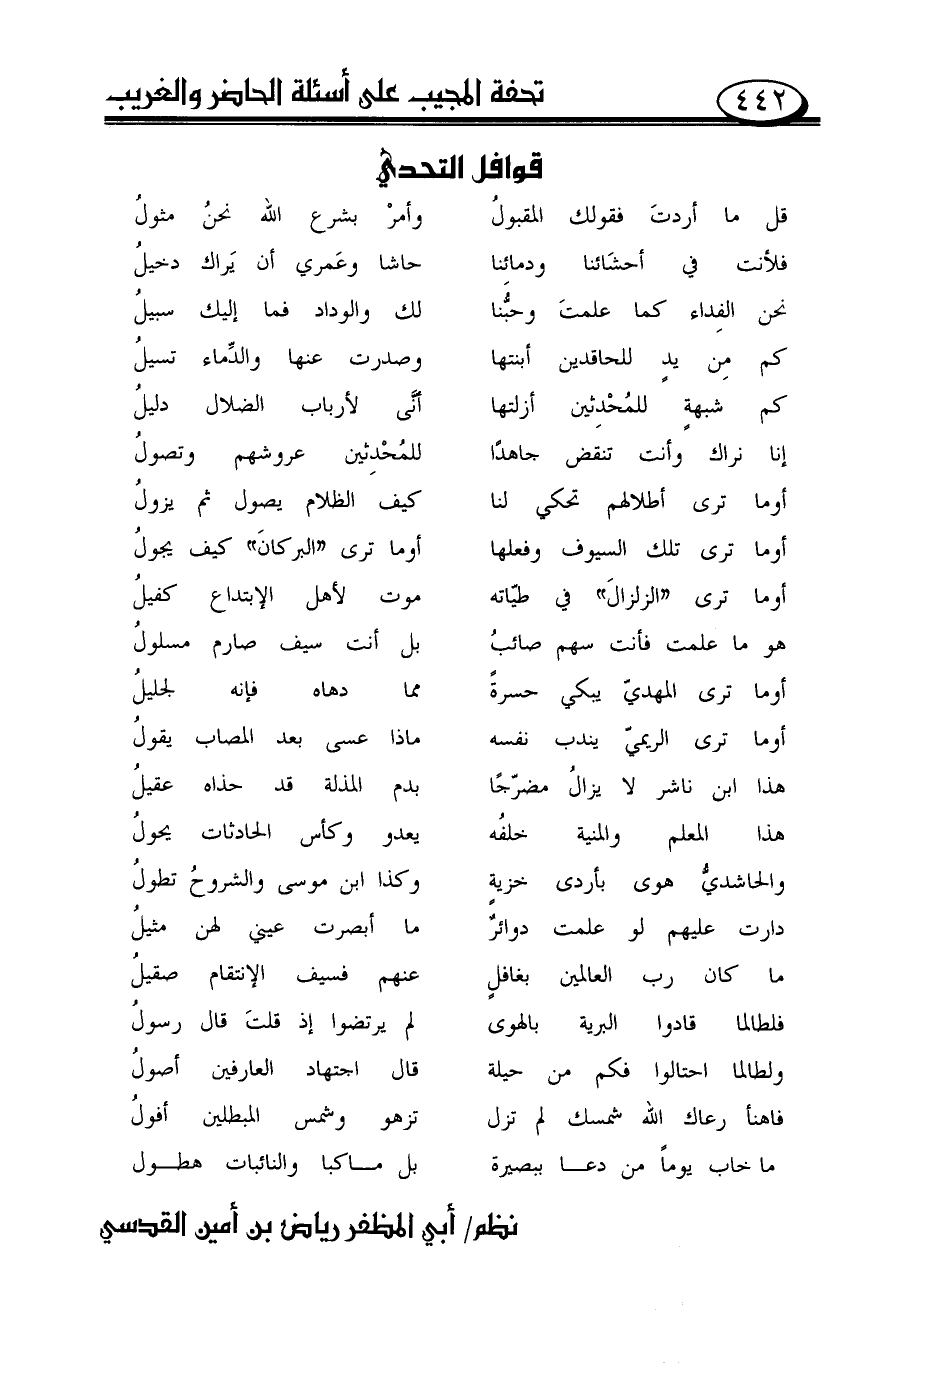 تحفة المجيب على أسئلة الحاضر والغريب ٤٤٢
قوافل التحدي
قل ما أردتَ فقولك المقبولُ وأمرْ بشرع الله نحنُ مثولُ
فلأنت في أحشَائنا ودمائنا حاشا وعَمري أن يَراك دخيلُ
نحن الفِداء كما علمتَ وحبُّنا لك والوداد فما إليك سبيلُ
كم مِن يدٍ للحاقدين أبنتها وصدرت عنها والدِّماء تسيلُ
كم شبهةٍ للمُحْدِثين أزلتها أنَّى لأرباب الضلال دليلُ
إنا نراك وأنت تنقض جاهدًا للمُحْدِثين عروشهم وتصولُ
أوما ترى أطلالهم تحكي لنا كيف الظلام يصول ثم يزولُ
أوما ترى تلك السيوف وفعلها أوما ترى «البركانَ» كيف يجولُ
أوما ترى «الزلزالَ» في طيّاته موت لأهل الإبتداع كفيلُ
هو ما علمت فأنت سهم صائبُ بل أنت سيف صارم مسلولُ
أوما ترى المهديّ يبكي حسرةً مما دهاه فإنه لجليلُ
أوما ترى الريميّ يندب نفسه ماذا عسى بعد المصاب يقولُ
هذا ابن ناشر لا يزالُ مضرّجًا بدم المذلة قد حذاه عقيلُ
هذا المعلم والمنية خلفُه يعدو وكأس الحادثات يحولُ
والحاشديُّ هوى بأردى خزيةٍ وكذا ابن موسى والشروحُ تطولُ
دارت عليهم لو علمت دوائرٌ ما أبصرت عيني لهن مثيلُ
ما كان رب العالمين بغافلٍ عنهم فسيف الإنتقام صقيلُ
فلطالما قادوا البرية بالهوى لم يرتضوا إذ قلتَ قال رسولُ
ولطالما احتالوا فكم من حيلة قال اجتهاد العارفين أصولُ
فاهنأ رعاك الله شمسك لم تزل تزهو وشمس المبطلين أفولُ
ما خاب يوماً من دعــا ببصيرة بل مــاكبا والنائبات هطــول
نظم/ أبي المظفر رياض بن أمين القدسي